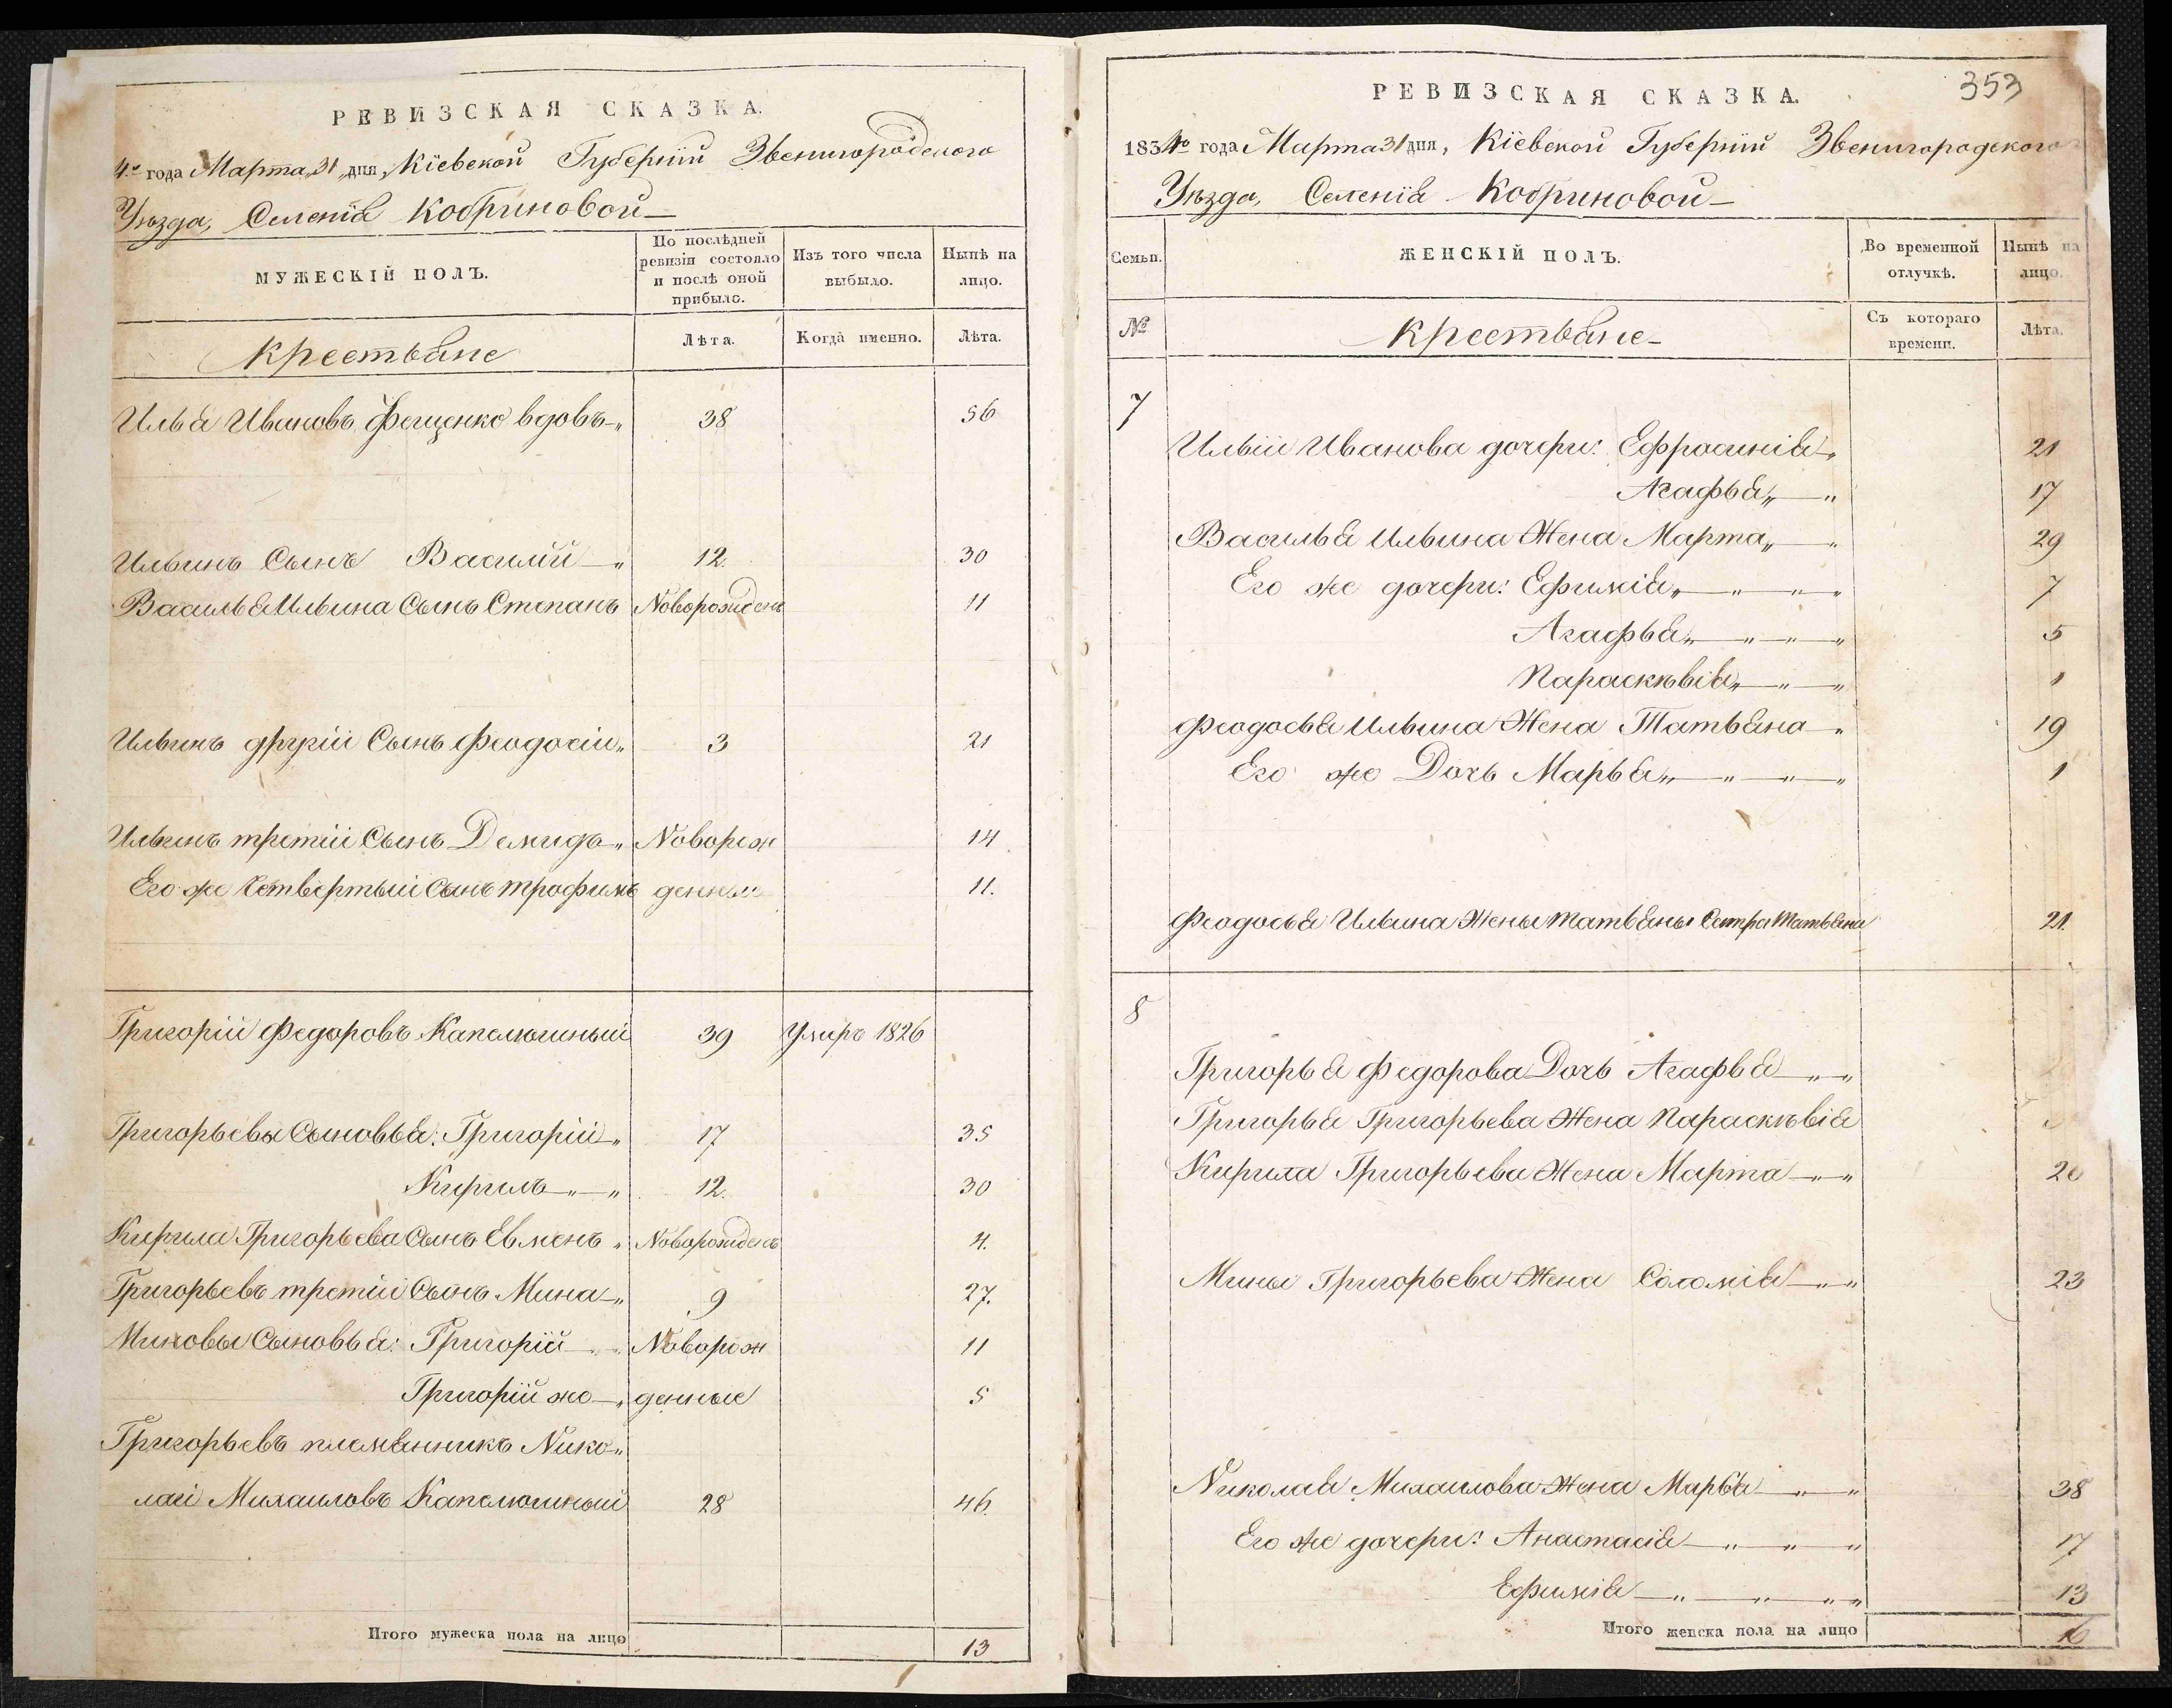 РЕВИЗСКАЯ СКАЗКА.
4го года Марта 31 дня, Кіевской Губерніи Звенигородского
Уѣзда, Селенія Кобриновой
МУЖЕСКІЙ ПОЛЪ.
По послѣдней ревизіи состояло и послѣ оной прибыло.
Изъ того числа выбыло.
Нынѣ на лицо.
Крестьяне
Лѣта.
Когда именно.
Лѣта.
Илья Ивановъ Фещенко вдовъ 38 56
Ильинъ Сынъ Василій 12. 30
Василья Ильина Сынъ Степанъ Новорожденъ 11
Ильинъ другій Сынъ Феодосій 3 21
Ильинъ третій Сынъ Демидъ Новорож 14
Его же Четвертый Сынъ Трофимъ денные 11.
Григорій Федоровъ Капелюшный 39 Умеръ 1826
Григорьевы Сыновья: Григорій 17 35
Кирилъ 12. 30
Кирила Григорьева Сынъ Евменъ Новорожденъ 4.
Григорьевъ третій Сынъ Мина 9 27.
Миновы Сыновья: Григорій Новорож 11
Григорій же денные 5
Григорьевъ племянникъ Нико
лай Михаиловъ Капелюшный 28 46.
Итого мужеска пола на лицо 13
353
РЕВИЗСКАЯ СКАЗКА.
1834го года Марта 31 дня, Кіевской Губерніи Звенигородского
Уѣзда, Селенія Кобриновой
Семьи.
ЖЕНСКІЙ ПОЛЪ.
Во временной отлучкѣ.
Нынѣ на лицо.
№
Крестьяне
Съ котораго времени.
Лѣта.
7
Ильи Иванова дочери: Ефросинія 21
Агафья 17
Василья Ильина Жена Марта 29
Его же дочери: Ефимія 7
Агафья 5
Параскѣвія 1
Феодосья Ильина Жена Татьяна 19
Его же Дочь Марья 1
Феодосья Ильина Жены Татьяны Сестра Татьяна 21.
8
Григорья Федорова Дочь Агафья
Григорья Григорьева Жена Параскѣвія
Кирила Григорьева Жена Марта
Мины Григорьева Жена Соломія 23
Николая Михаилова Жена Марья 38
Его же дочери: Анастасія 17
Ефимія 13
Итого женска пола на лицо 16